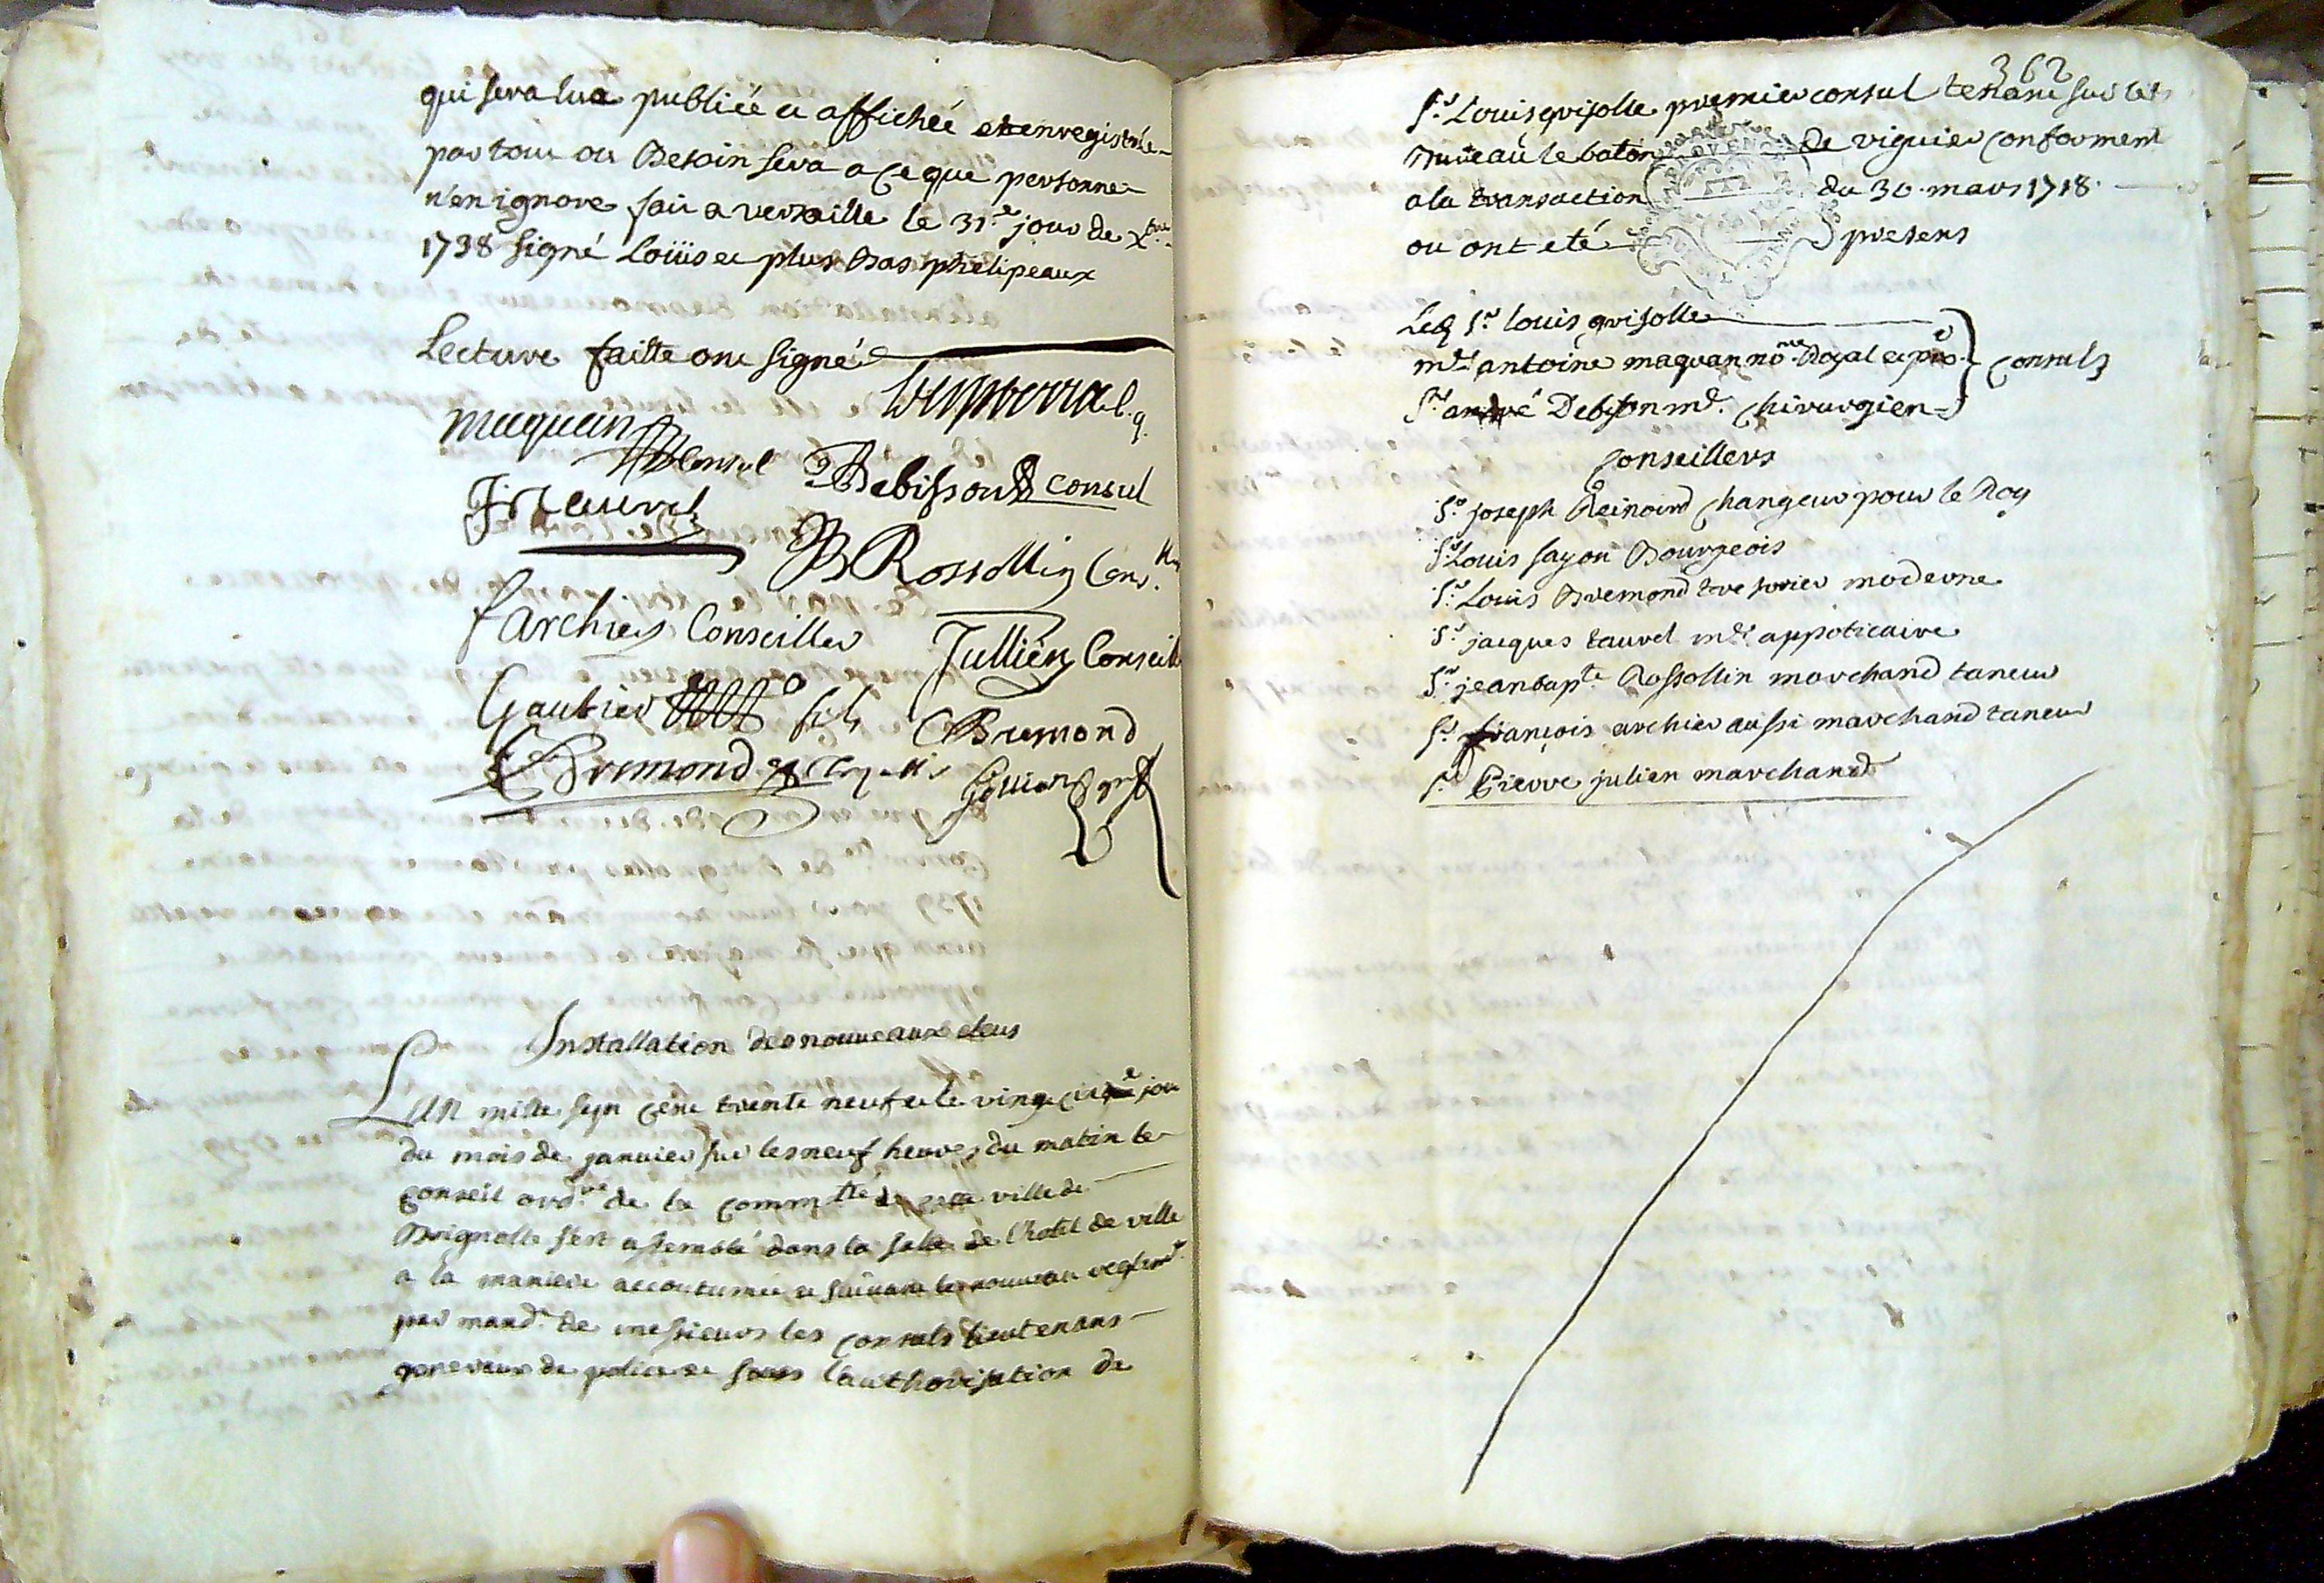 qui sera lue publiée et affichée et enregistrée
par tout ou besoin sera a ce que personne
n'en ignore fait a versaille le 31.e jour de xbre
1738 signé Louis et plus bas phelipeaux
Lecture faitte ont signé
maquan
Consul
Debisson consul
J Tauvel
JB Rossollin Cons.er
f archier Conseiller
Jullien Conseiller
Gautier fils
Bremond
Bremond
Installation des nouveaux eleus
L'an mille sept cens trente neuf et le vingt cinq.e jour
du mois de janvier sur les neuf heures du matin le
conseil ord.re de la commté de cette ville de
Brignolle s'est assemblé dans la sale de l'hotel de ville
a la maniere accoutumée et suivant le nouveau reglemt
par mandt de messieurs les consuls lieutenans
generaux de police et sous l'authorisation de
362
Sr Louis grisolle premier consul tenant sur les
bureau le baton de viguier conforment
a la transaction du 30 mars 1718.
ou ont eté presens
Led Sr Louis grisolle
me antoine maquan nore Royal et pr
consuls
Sr andré Debisson me. chirurgien
Conseillers
Sr joseph Reinoird changeur pour le Roy
Sr Louis fayon Bourgeois
Sr Louis Bremond tresorier moderne
Sr jacques tauvel me appoticaire
Sr jean bapte Rossollin marchand taneur
Sr françois archier aussi marchand taneur
Sr Pierre julien marchand